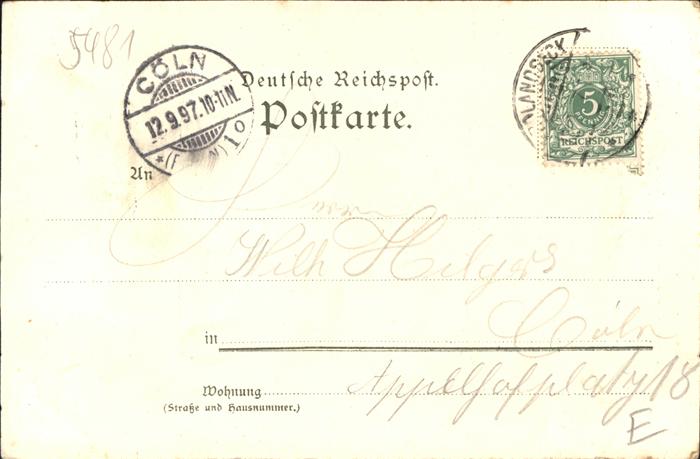 5481
CÖLN
12.9.97.10-11N.
1o
Deutsche Reichspost.
Postkarte.
OLANDSECK
5
PFENNIG
REICHSPOST
An
Herrn
Wilh Hilgers
in Cöln
Wohnung Appellhofplatz 18
(Straße und Hausnummer.)
E